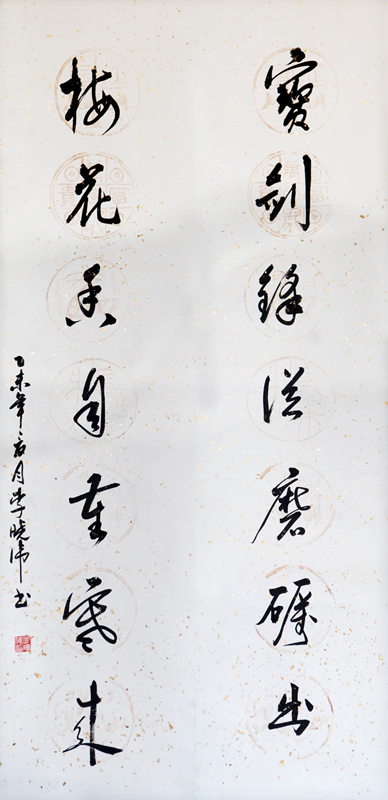 寶劍鋒從磨礪出
梅花香自苦寒来
乙未年月李晓书